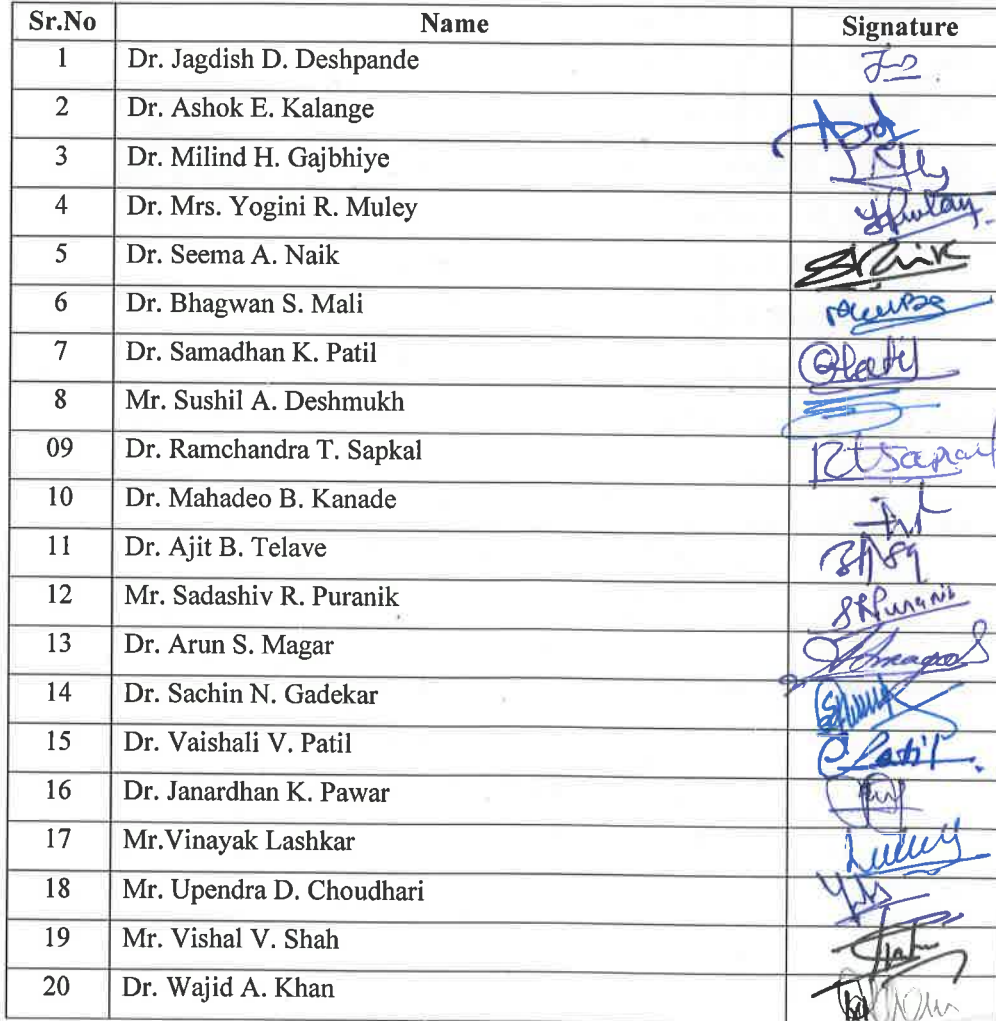 Sr.No Name Signature
1 Dr. Jagdish D. Deshpande
2 Dr. Ashok E. Kalange
3 Dr. Milind H. Gajbhiye
4 Dr. Mrs. Yogini R. Muley
5 Dr. Seema A. Naik
6 Dr. Bhagwan S. Mali
7 Dr. Samadhan K. Patil
8 Mr. Sushil A. Deshmukh
09 Dr. Ramchandra T. Sapkal
10 Dr. Mahadeo B. Kanade
11 Dr. Ajit B. Telave
12 Mr. Sadashiv R. Puranik SRPuranik
13 Dr. Arun S. Magar
14 Dr. Sachin N. Gadekar
15 Dr. Vaishali V. Patil
16 Dr. Janardhan K. Pawar
17 Mr.Vinayak Lashkar
18 Mr. Upendra D. Choudhari
19 Mr. Vishal V. Shah
20 Dr. Wajid A. Khan